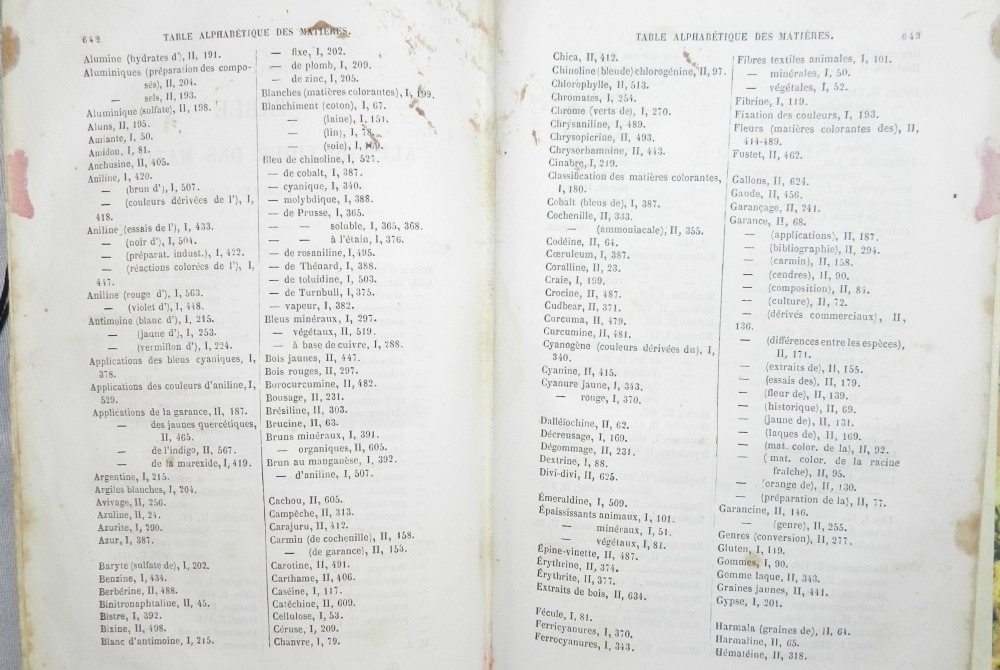 642
TABLE ALPHABÉTIQUE DES MATIÈRES.
Alumine (hydrates d'), II, 191.
Aluminiques (préparation des compo-
sés), II, 204.
— sels, II, 193.
Aluminique (sulfate), II, 198.
Aluns, II, 195.
Amiante, I, 50.
Amidon, I, 81.
Anchusine, II, 405.
Aniline, I, 420.
— (brun d'), I, 507.
— (couleurs dérivées de l'), I,
418.
Aniline (essais de l'), I, 433.
— (noir d'), I, 504.
— (préparat. indust.), I, 422.
— (réactions colorées de l'), I,
447.
Aniline (rouge d'), I, 563.
— (violet d'), I, 448.
Antimoine (blanc d'), I, 215.
— (jaune d'), I, 253.
— (vermillon d'), I, 224.
Applications des bleus cyaniques, I,
378.
Applications des couleurs d'aniline, I,
529.
Applications de la garance, II, 187.
— des jaunes quercétiques,
II, 465.
— de l'indigo, II, 567.
— de la murexide, I, 419.
Argentine, I, 215.
Argiles blanches, I, 204.
Avivage, II, 256.
Azuline, II, 24.
Azurite, I, 290.
Azur, I, 387.
Baryte (sulfate de), I, 202.
Benzine, I, 434.
Berbérine, II, 488.
Binitronaphtaline, II, 45.
Bistre, I, 392.
Bizine, II, 498.
Blanc d'antimoine, I, 215.
— fixe, I, 202.
— de plomb, I, 209.
— de zinc, I, 205.
Blanches (matières colorantes), I, 199.
Blanchiment (coton), I, 67.
— (laine), I, 151.
— (lin), I,
— (soie), I,
Bleu de chinoline, I, 527.
— de cobalt, I, 387.
— cyanique, I, 340.
— molybdique, I, 388.
— de Prusse, I, 365.
— — soluble, I, 365, 368.
— — à l'étain, I, 376.
— de rosaniline, I, 495.
— de Thénard, I, 388.
— de toluidine, I, 503.
— de Turnbull, I, 375.
— vapeur, I, 382.
Bleus minéraux, I, 297.
— végétaux, II, 519.
— à base de cuivre, I, 288.
Bois jaunes, II, 447.
Bois rouges, II, 297.
Borocurcumine, II, 482.
Bousage, II, 231.
Brésiline, II, 303.
Brucine, II, 63.
Bruns minéraux, I, 391.
— organiques, II, 605.
Brun au manganèse, I, 392.
— d'aniline, I, 507.
Cachou, II, 605.
Campêche, II, 313.
Carajuru, II, 412.
Carmin (de cochenille), II, 158.
— (de garance), II, 153.
Carotine, II, 491.
Carthame, II, 406.
Caséine, I, 117.
Catéchine, II, 609.
Cellulose, I, 53.
Céruse, I, 209.
Chanvre, I, 79.
TABLE ALPHABÉTIQUE DES MATIÈRES.
643
Chica, II, 412.
Chinoline (bleu de) chlorogénine, II, 97.
Chlorophylle, II, 513.
Chromates, I, 254.
Chrome (verts de), I, 270.
Chrysaniline, I, 489.
Chrysopicrine, II, 493.
Chrysorhamnine, II, 443.
Cinabre, I, 219.
Classification des matières colorantes,
I, 180.
Cobalt (bleus de), I, 387.
Cochenille, II, 333.
— (ammoniacale), II, 355.
Codéine, II, 64.
Cœruleum, I, 387.
Coralline, II, 23.
Craie, I, 199.
Crocine, II, 487.
Cudbear, II, 371.
Curcuma, II, 479.
Curcumine, II, 481.
Cyanogène (couleurs dérivées du), I,
340.
Cyanine, II, 415.
Cyanure jaune, I, 343.
— rouge, I, 370.
Dalléïochine, II, 62.
Décreusage, I, 169.
Dégommage, II, 231.
Dextrine, I, 88.
Divi-divi, II, 625.
Émeraldine, I, 509.
Épaississants animaux, I, 101.
— minéraux, I, 51.
— végétaux, I, 81.
Épine-vinette, II, 487.
Érythrine, II, 374.
Érythrite, II, 377.
Extraits de bois, II, 634.
Fécule, I, 81.
Ferricyanures, I, 370.
Ferrocyanures, I, 343.
Fibres textiles animales, I, 101.
— minérales, I, 50.
— végétales, I, 52.
Fibrine, I, 119.
Fixation des couleurs, I, 193.
Fleurs (matières colorantes des), II,
414-489.
Fustet, II, 462.
Gallons, II, 624.
Gaude, II, 456.
Garançage, II, 241.
Garance, II, 68.
— (applications), II, 187.
— (bibliographie), II, 294.
— (carmin), II, 158.
— (cendres), II, 90.
— (composition), II, 84.
— (culture), II, 72.
— (dérivés commerciaux), II,
136.
— (différences entre les espèces),
II, 171.
— (extraits de), II, 155.
— (essais des), II, 179.
— (fleur de), II, 139.
— (historique), II, 69.
— (jaune de), II, 131.
— (laques de), II, 169.
— (mat. color. de la), II, 92.
— (mat. color. de la racine
fraîche), II, 95.
— (orange de), II, 130.
— (préparation de la), II, 77.
Garancine, II, 146.
— (genre), II, 255.
Genres (conversion), II, 277.
Gluten, I, 119.
Gommes, I, 90.
Gomme laque, II, 343.
Graines jaunes, II, 441.
Gypse, I, 201.
Harmala (graines de), II, 64.
Harmaline, II, 65.
Hématéine, II, 318.